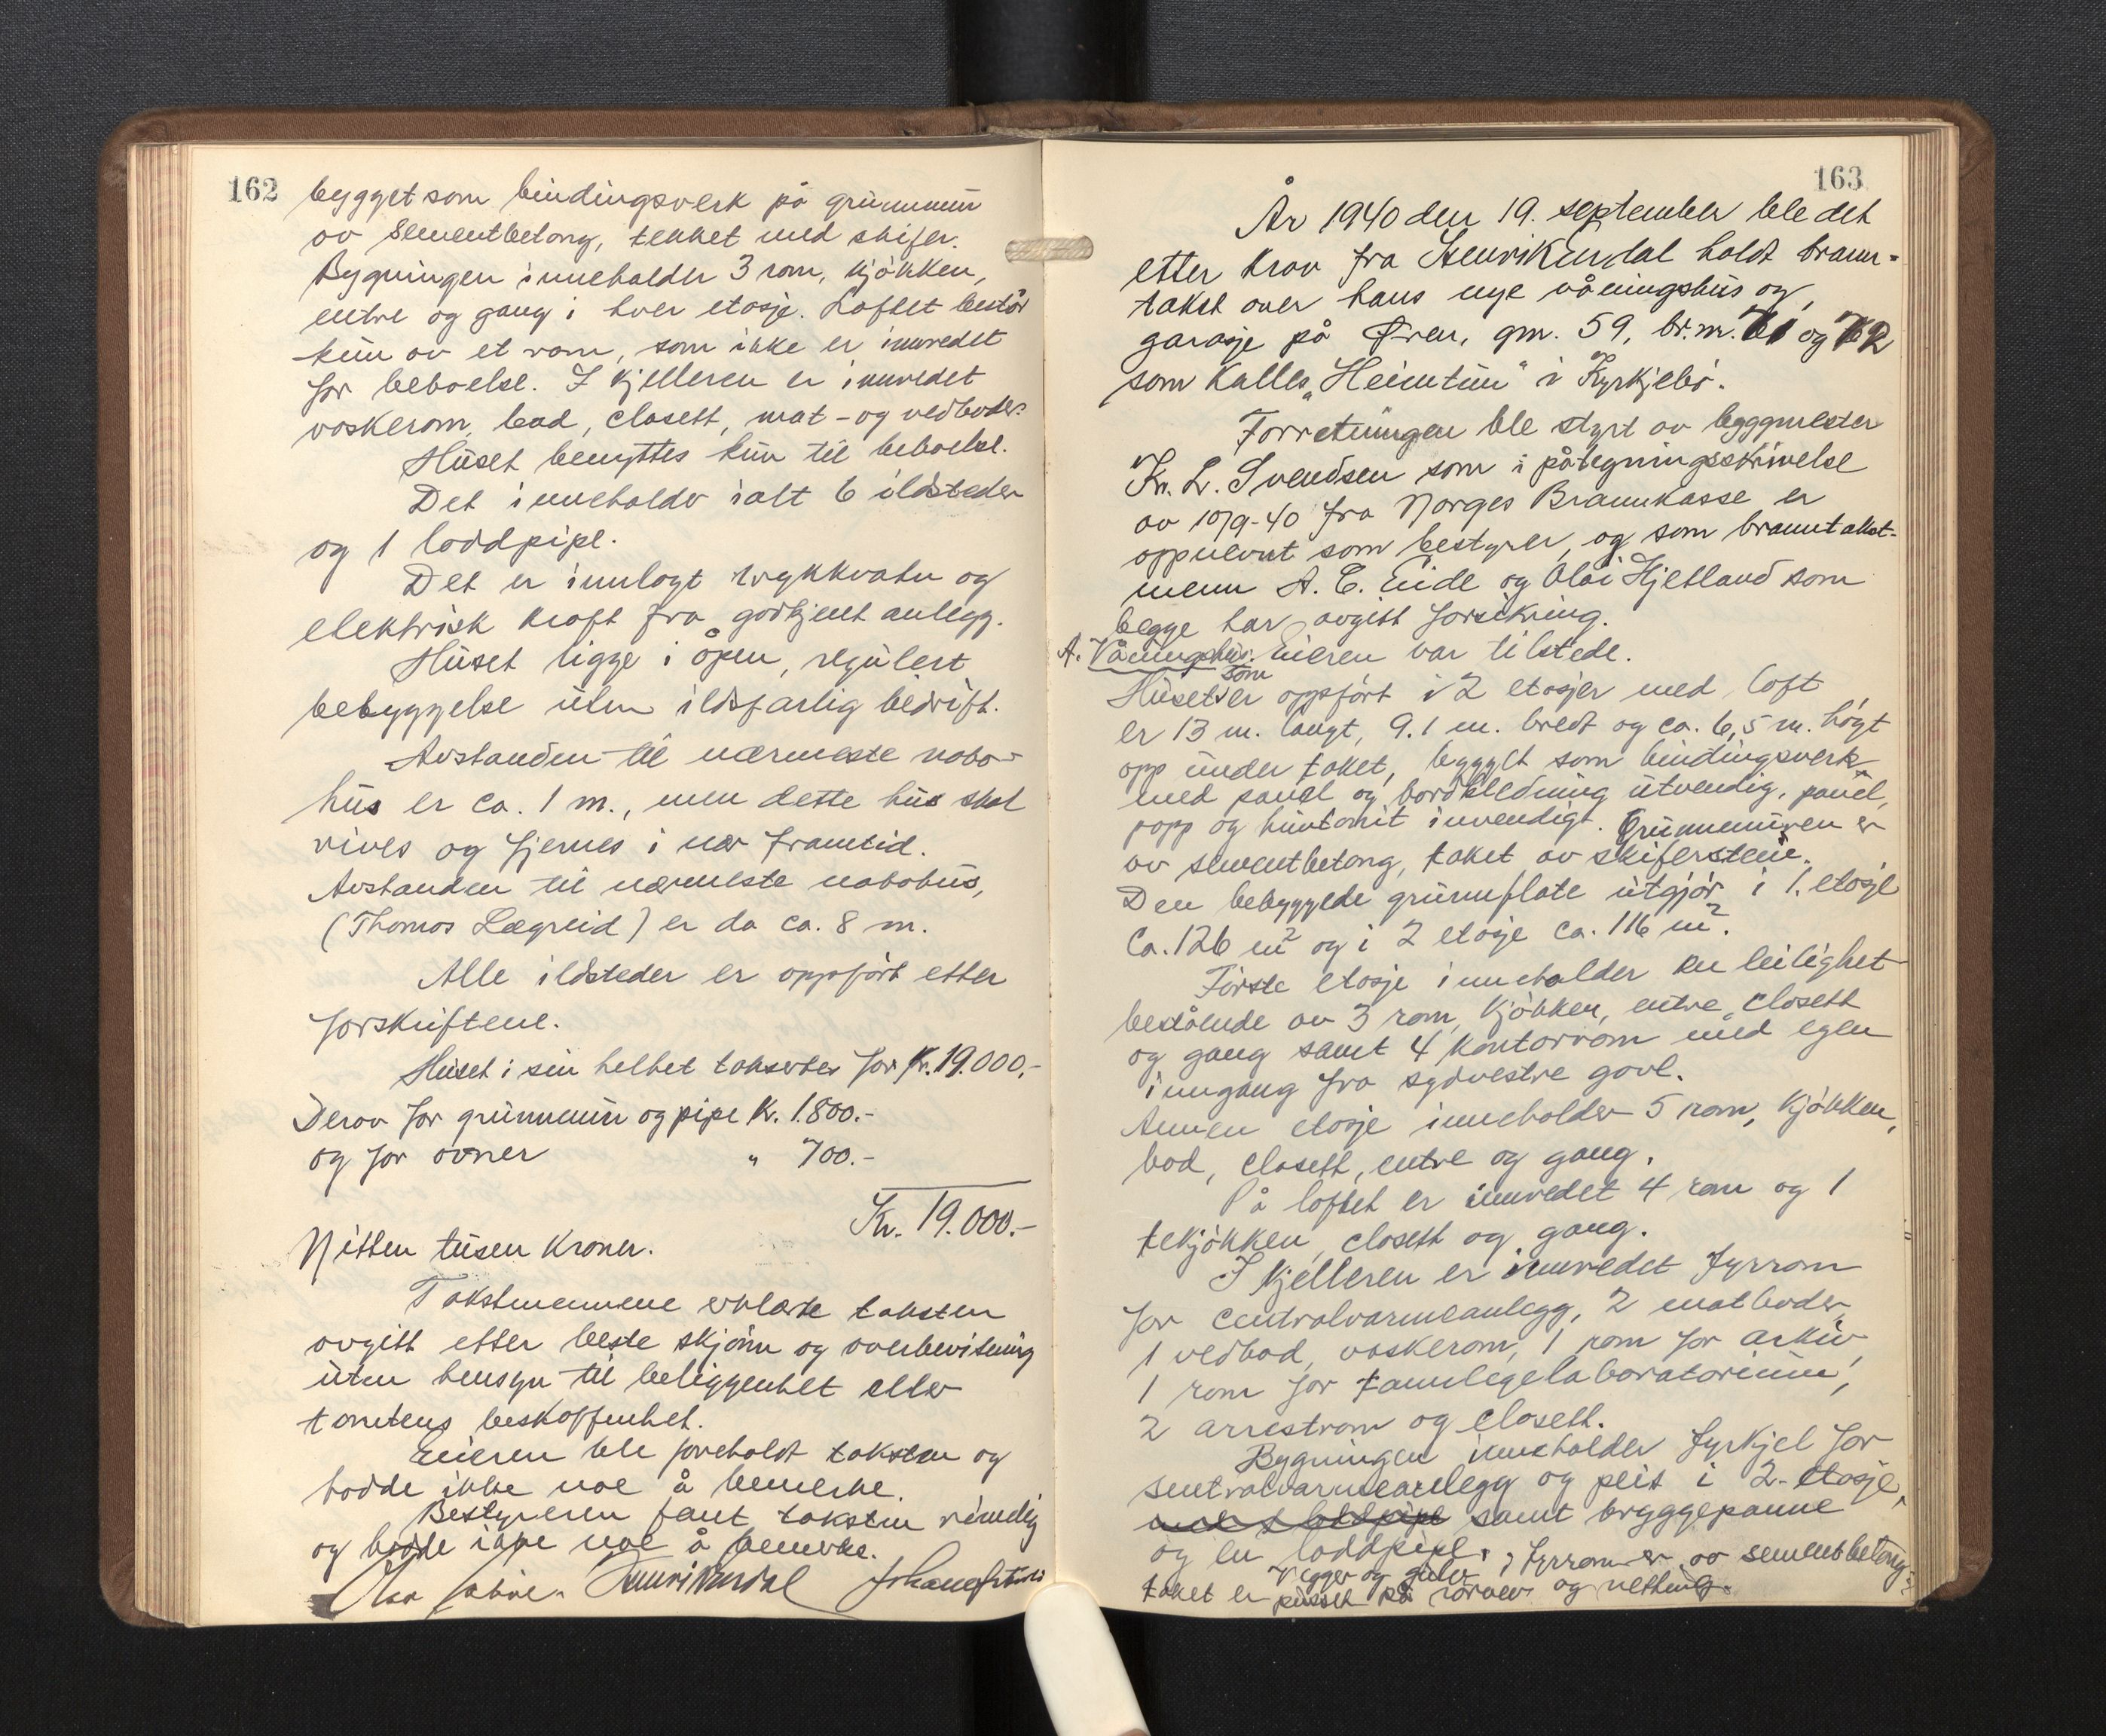 162
bygget som bindingsverk på grunnmur
av sementbetong, tekket med skifer.
Bygningen inneholder 3 rom, kjökken,
entre og gang i hver etasje. Loftet består
kun av et rom, som ikke er innredet
for beboelse. I kjelleren er innredet
vaskerom, bad, closett, mat- og vedboder.
Huset benyttes kun til beboelse.
Det inneholder ialt 6 ildsteder
og 1 loddpipe.
Det er innlagt trykkvatn og
elektrisk kraft fra godkjent anlegg.
Huset ligge i åpen, regulert
bebyggelse uten ildsfarlig bedrift.
Avstanden til nærmeste nabo-
hus er ca. 1 m., men dette hus skal
rives og fjernes i nær framtid.
Avstanden til nærmeste nabohus,
(Thomas Lægreid) er da ca. 8 m.
Alle ildsteder er oppfört etter
forskriftene.
Huset i sin helhet takseres for Kr. 19.000.-
Derav for grunnmur og pipe Kr. 1.800.-
og for ovner " 700.-
Kr. 19.000.-
Nitten tusen kroner.
Takstmennene erklærte taksten
avgitt etter beste skjönn og overbevisning
uten hensyn til beliggenhet eller
tomtens beskaffenhet.
Eieren ble foreholdt taksten og
hadde ikke noe å bemerke.
Bestyreren fant taksten rimelig
og hadde ikke noe å bemerke.
163
År 1940 den 19. september ble det
etter krav fra Henrik Zurdal holdt brann-
takst over hans nye våningshus og
garasje på Øren, gnr. 59, br.nr. 71 og 72
som kalles "Heimtun" i Kyrkjebö.
Forretningen ble styrt av byggmester
Kr. L. Svendsen som i påtegningsskrivelse
av 10/9-40 fra Norges Brannkasse er
oppnevnt som bestyrer, og som branntakst-
menn A. E. Eide og Olai Hjetland som
begge har avgitt forsikring.
A. Våningshus. Eieren var tilstede.
Huset som er oppfört i 2 etasjer med loft
er 13 m. langt, 9.1 m. bredt og ca. 6,5 m. högt
opp under taket, bygget som bindingsverk
med panel og bordkledning utvendig, panel,
papp og huntonit invendigt. Grunnmuren er
av sementbetong, taket av skiferstein.
Den bebyggede grunnflate utgjör i 1. etasje
ca. 126 m² og i 2 etasje ca. 116 m².
Förste etasje inneholder en leilighet
bestående av 3 rom, kjökken, entre, closett
og gang samt 4 kontorrom med egen
inngang fra sydvestre gavl.
Annen etasje inneholder 5 rom, kjökken,
bad, closett, entre og gang.
På loftet er innredet 4 rom og 1
tekjökken, closett og gang.
I kjelleren er innredet fyrrom
for centralvarmeanlegg, 2 matboder,
1 vedbod, vaskerom, 1 rom for arkiv,
1 rom for tannlegelaboratorium,
2 arrestrom og closett.
Bygningen inneholder fyrkjel for
sentralvarmeanlegg og peis i 2. etasje,
med 1 loddpipe samt bryggepanne
og en loddpipe. Vegger og gulv i fyrrom er av sementbetong,
taket er pusset på rörvev og netting.